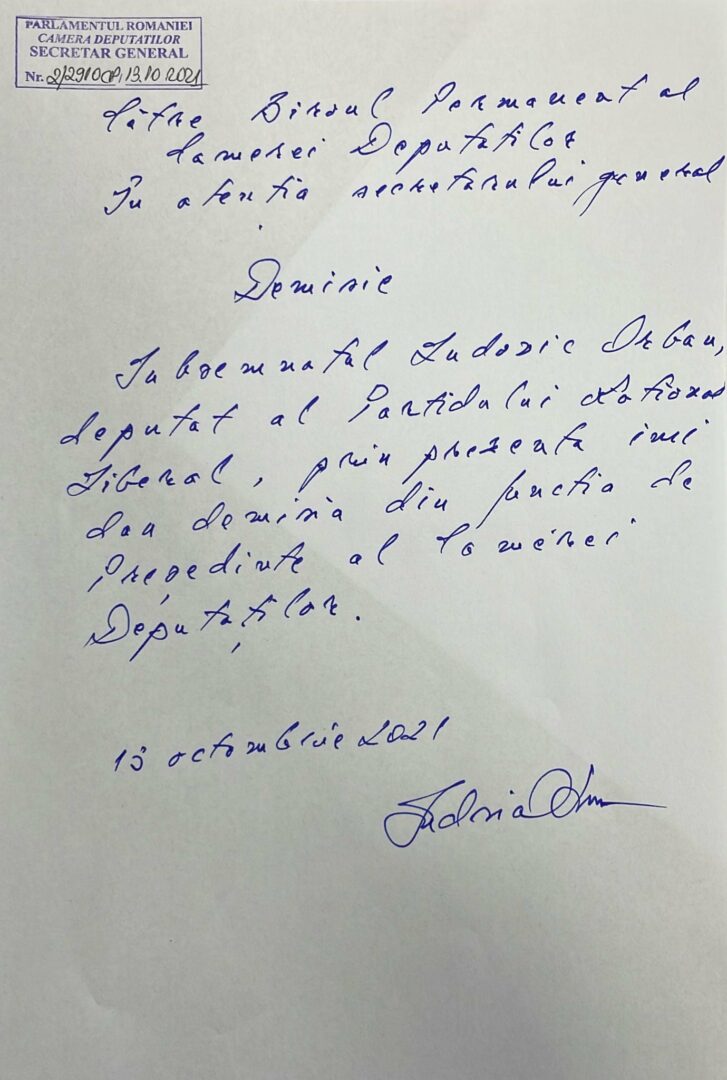 PARLAMENTUL ROMANIEI
CAMERA DEPUTATILOR
SECRETAR GENERAL
Nr. 2/2910CP, 13.10 2021
Către Biroul Permanent al
Camerei Deputatilor
În atenția secretarului general
Demisie
Subsemnatul Ludovic Orban,
deputat al Partidului Național
Liberal, prin prezenta imi
dau demisia din functia de
Președinte al Camerei
Deputaților.
13 octombrie 2021
Ludovic Orban